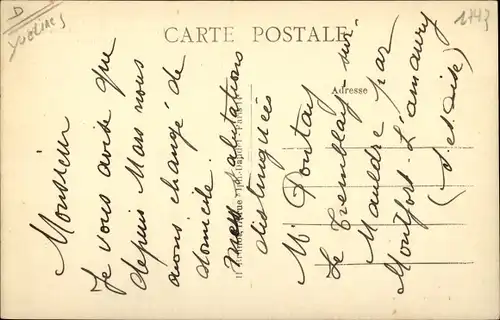 D
YVELINES
1743
CARTE POSTALE
Adresse
Monsieur
Je vous avise que
depuis Mars nous
avons changé de
domicile.
Mes salutations
distinguées
M. Pontay
Le Tremblay-sur-
Mauldre par
Montfort-L'amaury
(S et Oise)